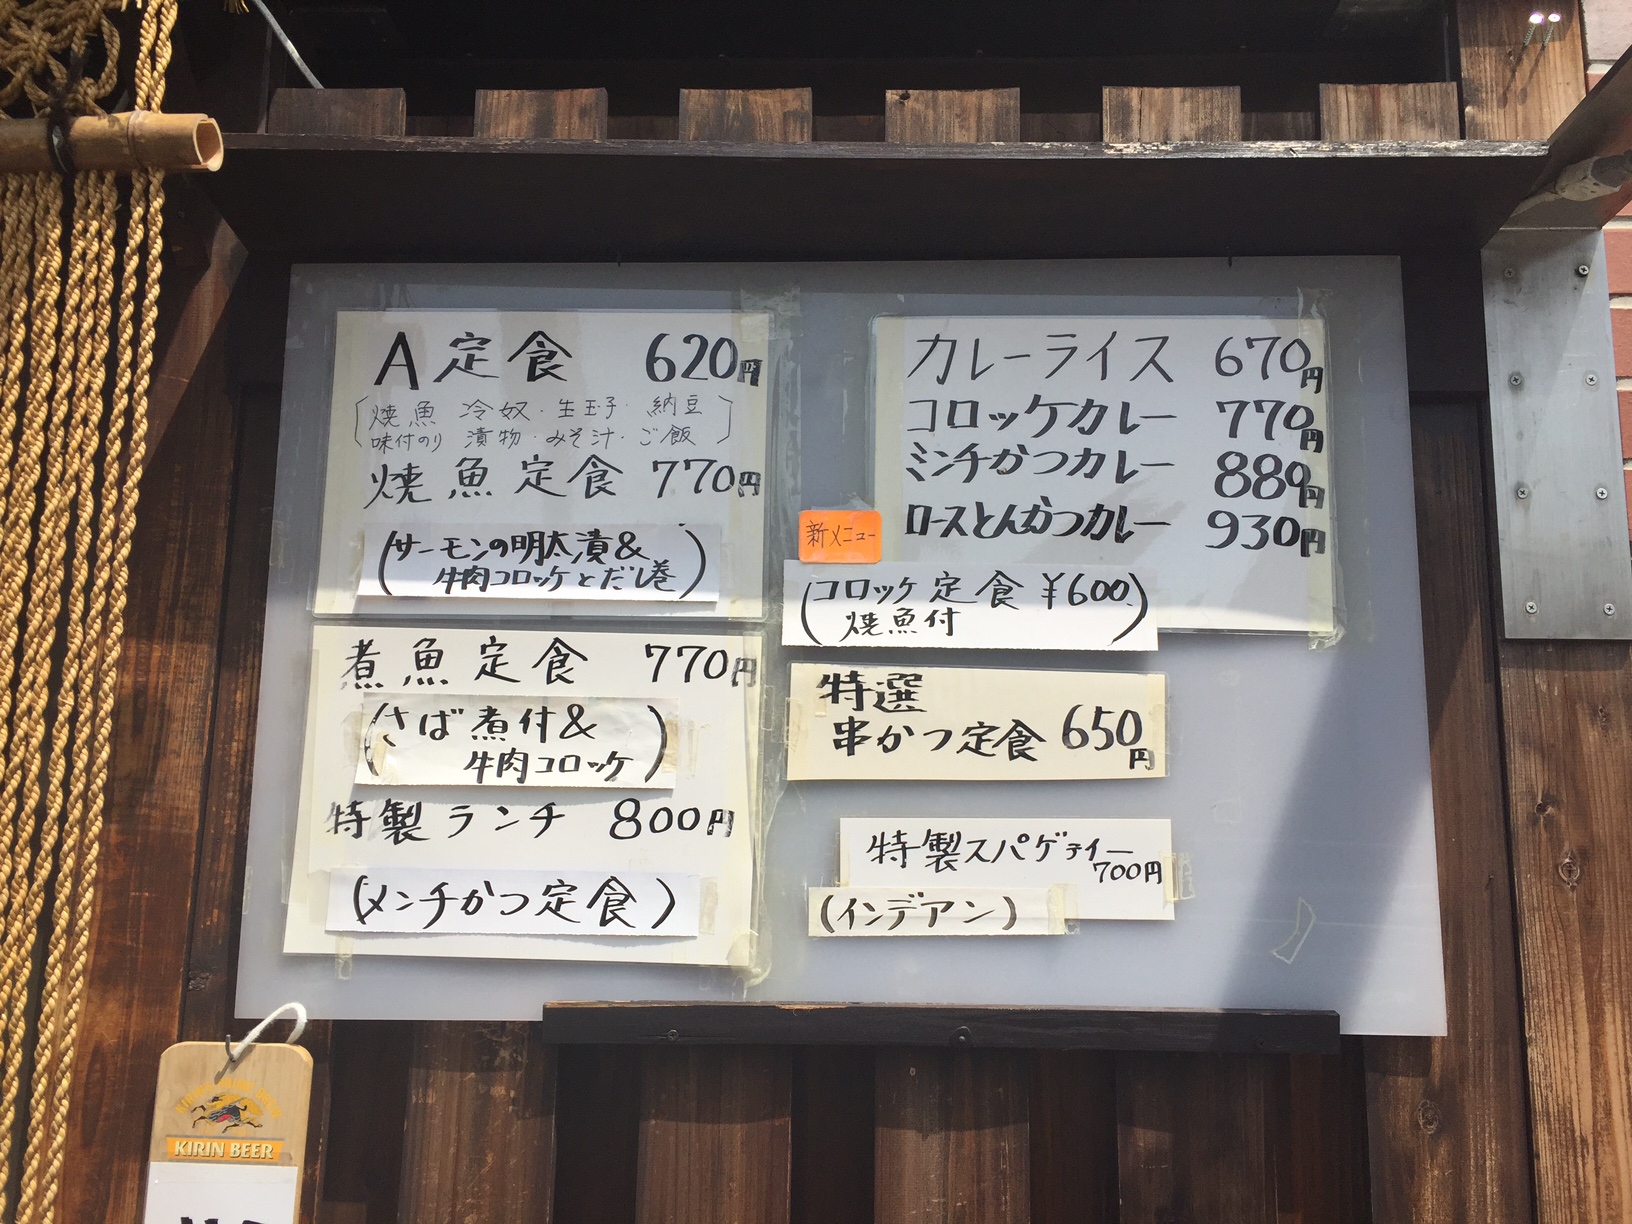 A定食 620円
焼魚 冷奴・生玉子・納豆
味付のり 漬物・みそ汁・ご飯
焼魚定食 770円
(サーモンの明太漬&
牛肉コロッケとだし巻)
煮魚定食 770円
(さば煮付&
牛肉コロッケ)
特製ランチ 800円
(メンチかつ定食)
カレーライス 670円
コロッケカレー 770円
ミンチかつカレー 880円
ロースとんかつカレー 930円
新メニュー
(コロッケ定食 ¥600
焼魚付)
特選
串かつ定食 650円
特製スパゲティー
700円
(インデアン)
KIRIN BEER